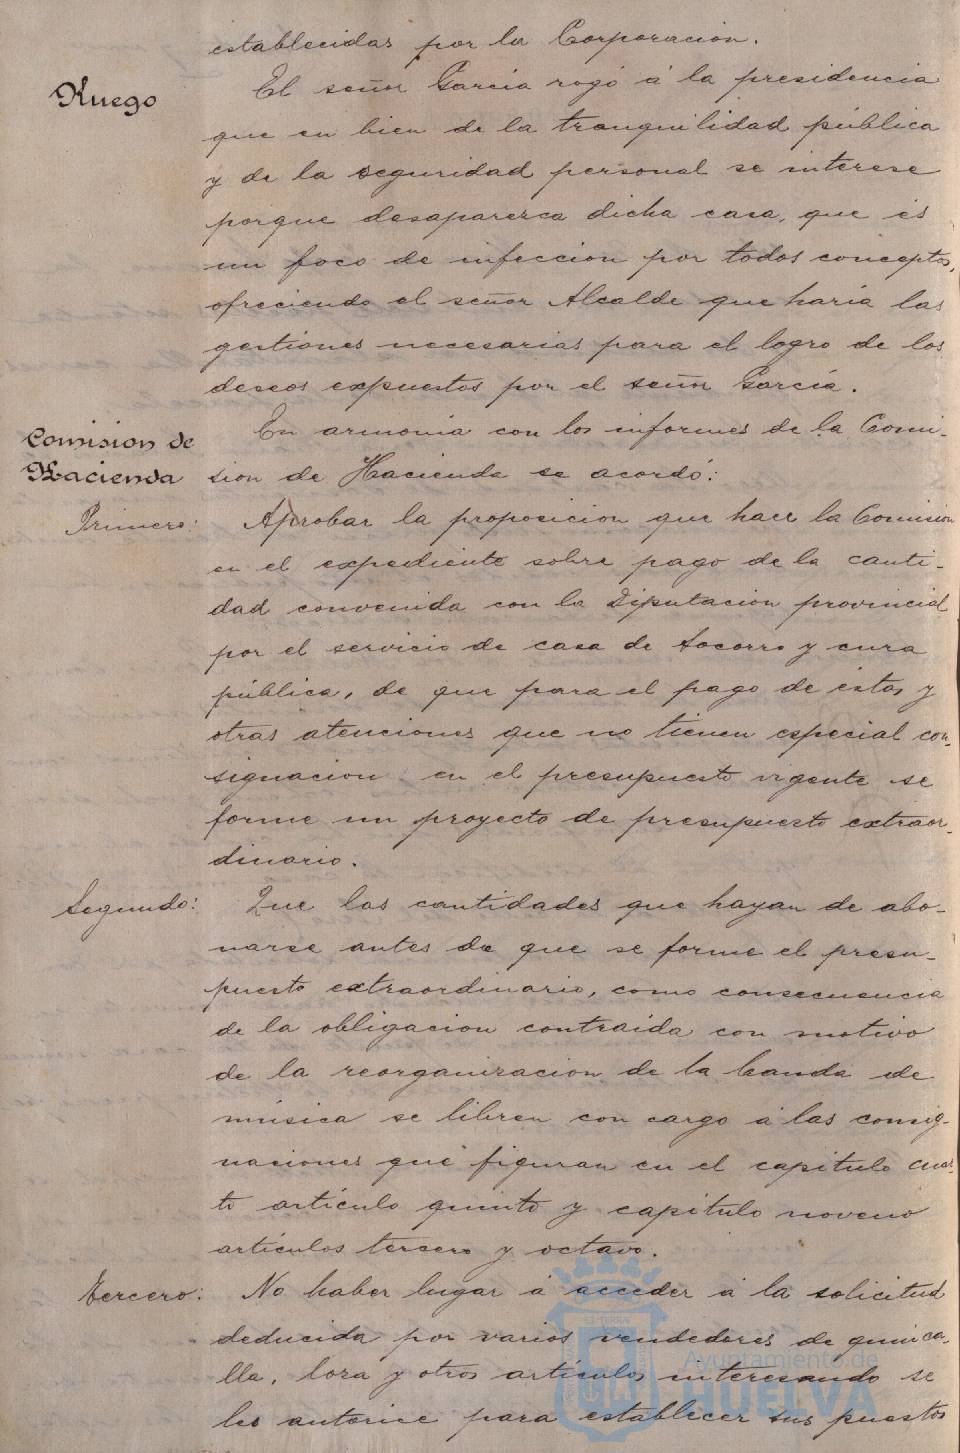 establecidas por la Corporacion.
Ruego
El señor García rogó á la presidencia
que en bien de la tranquilidad pública
y de la seguridad personal se interese
porque desaparezca dicha casa, que es
un foco de infeccion por todos conceptos,
ofreciendo el señor Alcalde que haría las
gestiones necesarias para el logro de los
deseos expuestos por el señor García.
Comision de
Hacienda
En armonia con los informes de la Comi-
sion de Hacienda se acordó:
Primero:
Aprobar la proposicion que hace la Comision
en el expediente sobre pago de la canti-
dad convenida con la Diputacion provincial
por el servicio de casa de Socorro y cura
pública, de que para el pago de éstas y
otras atenciones que no tienen especial con-
signacion en el presupuesto vigente se
forme un proyecto de presupuesto extraor-
dinario.
Segundo:
Que las cantidades que hayan de abo-
narse antes de que se forme el presu-
puesto extraordinario, como consecuencia
de la obligacion contraída con motivo
de la reorganizacion de la banda de
música se libren con cargo á las consig-
naciones que figuran en el capítulo cuar-
to artículo quinto y capítulo noveno
artículos tercero y octavo.
Tercero:
No haber lugar á acceder á la solicitud
deducida por varios vendedores de quinca-
lla, loza y otros artículos interesando se
les autorice para establecer sus puestos
Ayuntamiento de
HUELVA